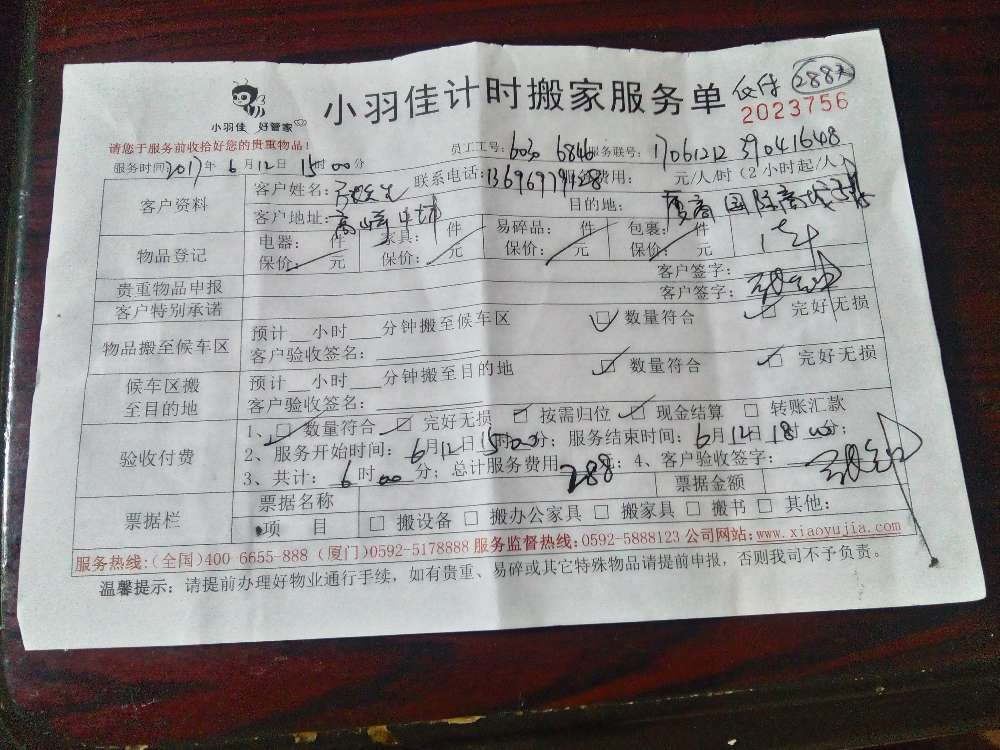 小羽佳 好管家
小羽佳计时搬家服务单 288元
2023756
请您于服务前收拾好您的贵重物品!
员工工号: 6030 6846 服务联号: 17061212 390416148
服务时间: 2017年 6月12日 15时00分
客户资料 客户姓名: 联系电话: 服务费用: 元/人/时 (2小时起/人)
客户地址: 高崎 目的地: 国际商城
物品登记 电器: 件 家具: 件 易碎品: 件 包裹: 件
保价: 元 保价: 元 保价: 元 保价: 元
贵重物品申报 客户签字:
客户特别承诺 客户签字:
物品搬至候车区 预计___小时___分钟搬至候车区 □ 数量符合 □ 完好无损
客户验收签名:
候车区搬至目的地 预计___小时___分钟搬至目的地 □ 数量符合 □ 完好无损
客户验收签名:
验收付费 1、□ 数量符合 □ 完好无损 □ 按需归位 □ 现金结算 □ 转账汇款
2、服务开始时间: 6月12日15时00分; 服务结束时间: 6月12日18时00分;
3、共计: 6时00分; 总计服务费用 288 ; 4、客户验收签字:
票据栏 票据名称 票据金额
项 目 □ 搬设备 □ 搬办公家具 □ 搬家具 □ 搬书 □ 其他:
服务热线:(全国)400-6655-888 (厦门)0592-5178888 服务监督热线:0592-5888123 公司网站:www.xiaoyujia.com
温馨提示: 请提前办理好物业通行手续, 如有贵重、易碎或其它特殊物品请提前申报, 否则我司不予负责。